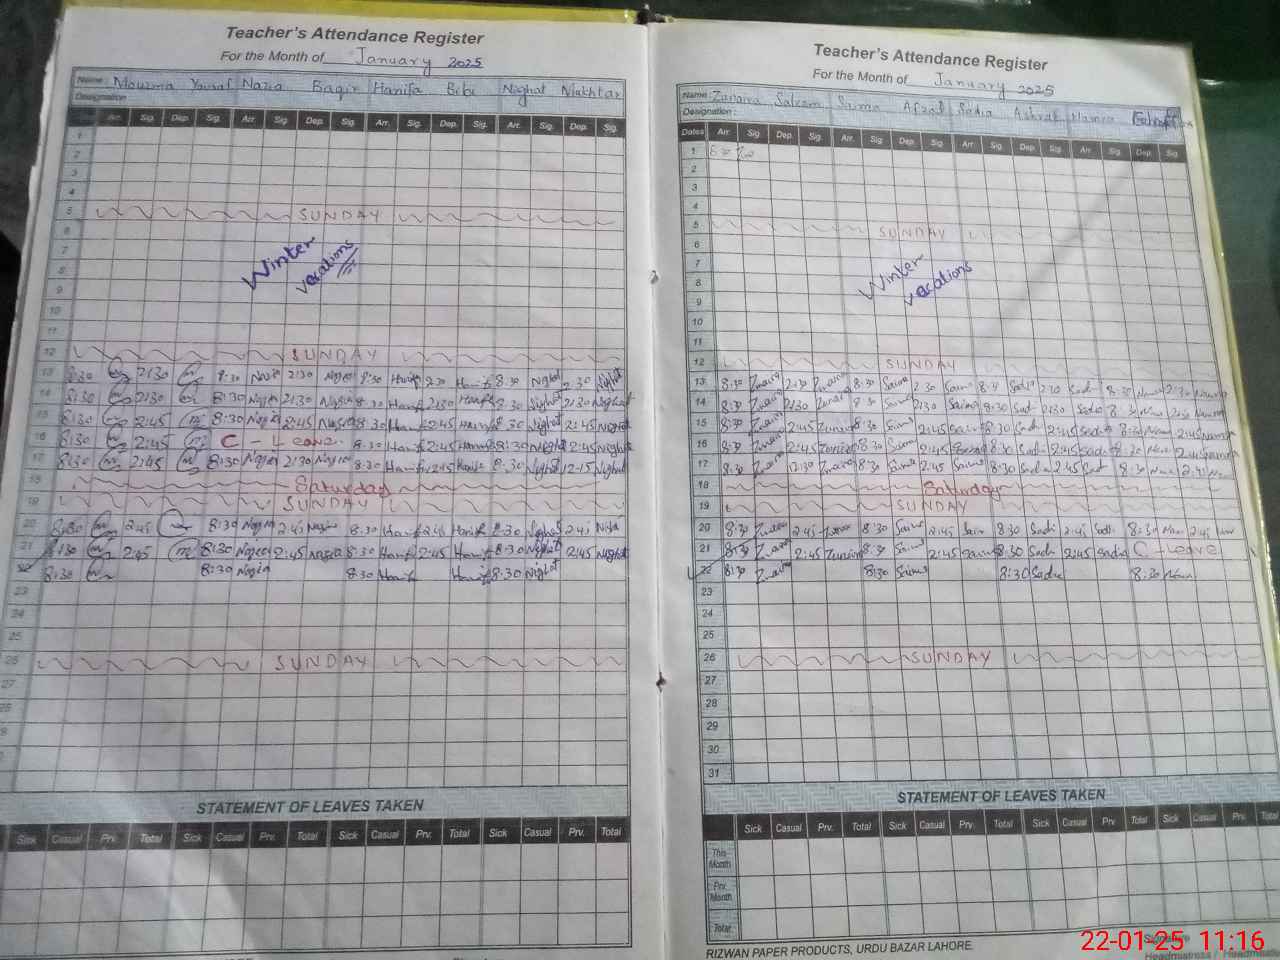 Teacher's Attendance Register
For the Month of January 2025
Name: Mouzma Yousaf Nazia Baqir Hanifa Bibi Nighat Mukhtar
Designation
Arr. Sig. Dep. Sig. Arr. Sig. Dep. Sig. Arr. Sig. Dep. Sig. Arr. Sig. Dep. Sig.
1
2
3
4
5 SUNDAY
6
7 Winter
8 vacations
9
10
11
12 SUNDAY
13 8:30 2:30 8:30 Nazia 2:30 Nazia 8:30 Hanif 2:30 Hanif 8:30 Nighat 2:30 Nighat
14 8:30 2:30 8:30 Nazia 2:30 Nazia 8:30 Hanif 2:30 Hanif 8:30 Nighat 2:30 Nighat
15 8:30 2:45 m 8:30 Nazia 2:45 Nazia 8:30 Hanif 2:45 Hanif 8:30 Nighat 2:45 Nighat
16 8:30 2:45 m C - Leave. 8:30 Hanif 2:45 Hanif 8:30 Nighat 2:45 Nighat
17 8:30 m 2:45 m 8:30 Nazia 2:30 Nazia 8:30 Hanif 12:15 Hanif 8:30 Nighat 12:15 Nighat
18 Saturday
19 SUNDAY
20 8:30 m 2:45 8:30 Nazia 2:45 Nazia 8:30 Hanif 2:45 Hanif 8:30 Nighat 2:45
21 8:30 m 2:45 m 8:30 Nazia 2:45 Nazia 8:30 Hanif 2:45 Hanif 8:30 Nighat 2:45 Nighat
22 8:30 m 8:30 Nazia 8:30 Hanif Hanif 8:30 Nighat
23
24
25
26 SUNDAY
27
28
29
STATEMENT OF LEAVES TAKEN
Sick Casual Prv. Total Sick Casual Prv. Total Sick Casual Prv. Total Sick Casual Prv. Total
Teacher's Attendance Register
For the Month of January 2025
Name: Zunaira Saleem Saima Afzal Sadia Ashraf Namra
Designation:
Dates Arr. Sig. Dep. Sig. Arr. Sig. Dep. Sig. Arr. Sig. Dep. Sig. Arr. Sig. Dep. Sig.
1
2
3
4
5 SUNDAY
6
7 Winter
8 vacations
9
10
11
12 SUNDAY
13 8:30 2:30 8:30 Saima 2:30 Saima Sadi 2:30 Sadi 8:30 2:30
14 8:30 2:30 8:30 Saima 2:30 Saima 8:30 Sadi 2:30 Sadia 8:30 2:30
15 8:30 2:45 8:30 Saima 2:45 Saima 8:30 Sadi 2:45 Sadia 8:30 Nam 2:45
16 8:30 2:45 8:30 Saima 2:45 8:30 Sadi 2:45 Sadia 8:30 Nam 2:45
17 8:30 12:30 8:30 Saima 2:45 Saima 8:30 Sadia 2:45 Sad 8:30
18 Saturday
19 SUNDAY
20 8:30 2:45 8:30 Saima 2:45 Saim 8:30 Sadi 2:45 Sadi 8:30 Nam 2:45
21 8:30 2:45 8:30 Saima 2:45 Saima 8:30 Sadi 2:45 Sadia C - Leave
22 8:30 8:30 Saima 8:30 Sadia 8:30
23
24
25
26 SUNDAY
27
28
29
30
31
STATEMENT OF LEAVES TAKEN
Sick Casual Prv. Total Sick Casual Prv. Total Sick Casual Prv. Total Sick Casual Prv. Total
This Month
Prv. Month
Total
RIZWAN PAPER PRODUCTS, URDU BAZAR LAHORE.
Signature
Headmistress / Headmaster
22-01-25 11:16